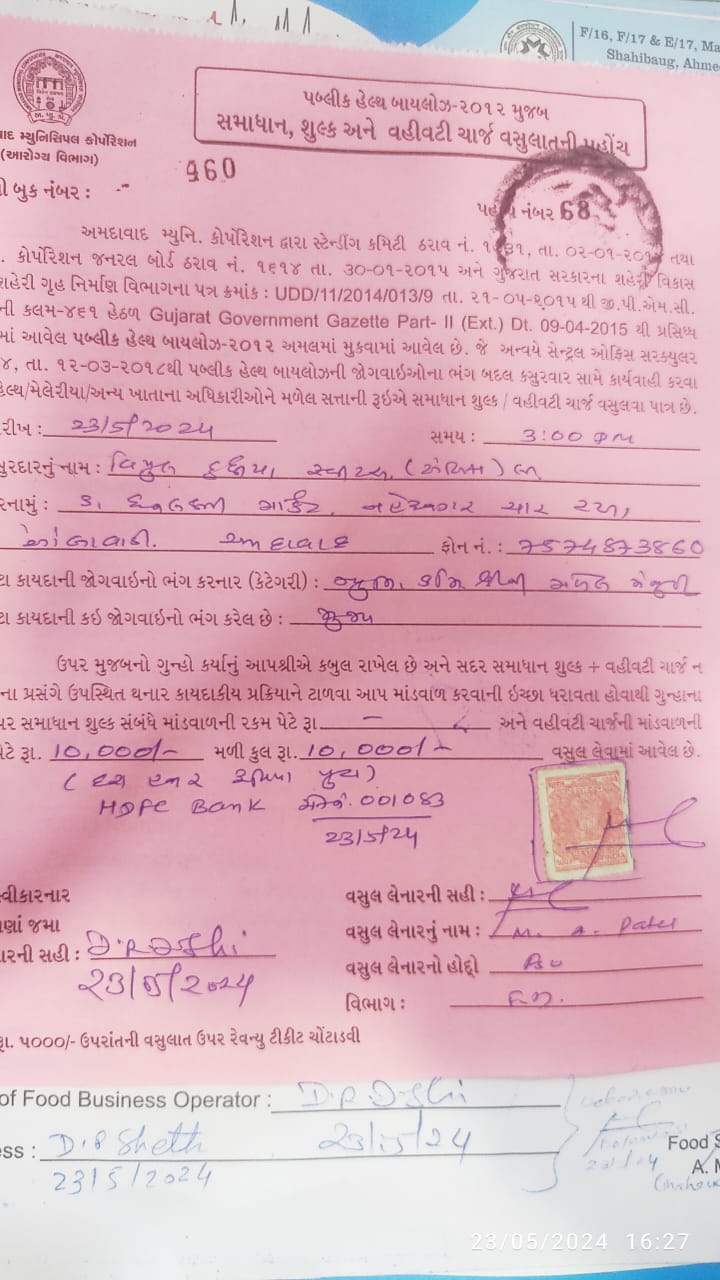 F/16, F/17 & E/17, Ma
Shahibaug, Ahme
પબ્લીક હેલ્થ બાયલોઝ-૨૦૧૨ મુજબ
સમાધાન, શુલ્ક અને વહીવટી ચાર્જ વસુલાતની પહોંચ
વાદ મ્યુનિસિપલ કોર્પોરેશન
(આરોગ્ય વિભાગ)
960
ી બુક નંબર :
નંબર 68
અમદાવાદ મ્યુનિ. કોર્પોરેશન દ્વારા સ્ટેન્ડીંગ કમિટી ઠરાવ નં. તા. ૦૨-૦૧-૨૦૧ તથા
. કોર્પોરેશન જનરલ બોર્ડ ઠરાવ નં. ૧૬૧૪ તા. ૩૦-૦૧-૨૦૧૫ અને ગુજરાત સરકારના શહેરી વિકાસ
શહેરી ગૃહ નિર્માણ વિભાગના પત્ર ક્રમાંક : UDD/11/2014/013/9 તા. ૨૧-૦૫-૨૦૧૫ થી જી.પી.એમ.સી.
ની કલમ-૪૬૧ હેઠળ Gujarat Government Gazette Part- II (Ext.) Dt. 09-04-2015 થી પ્રસિધ્ધ
માં આવેલ પબ્લીક હેલ્થ બાયલોઝ-૨૦૧૨ અમલમાં મુકવામાં આવેલ છે. જે અન્વયે સેન્ટ્રલ ઓફિસ સરક્યુલર
૪, તા. ૧૨-૦૩-૨૦૧૮થી પબ્લીક હેલ્થ બાયલોઝની જોગવાઇઓના ભંગ બદલ કસુરવાર સામે કાર્યવાહી કરવા
હેલ્થ/મેલેરીયા/અન્ય ખાતાના અધિકારીઓને મળેલ સત્તાની રૂઇએ સમાધાન શુલ્ક / વહીવટી ચાર્જ વસુલવા પાત્ર છે.
રીખ : 23/5/2024 સમય : 3:00 pm
સુરદારનું નામ : વિપુલ દુધીયા
રનામું : માર્કેટ, નહેરૂનગર ચાર રસ્તા,
આંબાવાડી. અમદાવાદ ફોન નં. : 7574873860
ટા કાયદાની જોગવાઇનો ભંગ કરનાર (કેટેગરી) :
ટા કાયદાની કઇ જોગવાઇનો ભંગ કરેલ છે :
ઉપર મુજબનો ગુન્હો કર્યાનું આપશ્રીએ કબુલ રાખેલ છે અને સદર સમાધાન શુલ્ક + વહીવટી ચાર્જ ન
ના પ્રસંગે ઉપસ્થિત થનાર કાયદાકીય પ્રક્રિયાને ટાળવા આપ માંડવાળ કરવાની ઇચ્છા ધરાવતા હોવાથી ગુન્હાના
પર સમાધાન શુલ્ક સંબંધે માંડવાળની રકમ પેટે રૂા. - અને વહીવટી ચાર્જની માંડવાળની
પેટે રૂા. 10,000/- મળી કુલ રૂા. 10,000/- વસુલ લેવામાં આવેલ છે.
(દશ હજાર રૂપિયા પુરા)
HDFC Bank ચેક નં. 001083
23/5/24
સ્વીકારનાર
વસુલ લેનારની સહી :
ણાં જમા
વસુલ લેનારનું નામ : M. A. Patel
ારની સહી : D.R.Doshi
23/5/2024
વસુલ લેનારનો હોદ્દો
વિભાગ :
રૂા. ૫૦૦૦/- ઉપરાંતની વસુલાત ઉપર રેવન્યુ ટીકીટ ચોંટાડવી
of Food Business Operator : D.R.Doshi
23/5/24
ess : D.R Sheth
23/5/2024
Food S
A. M
23/05/2024 16:27